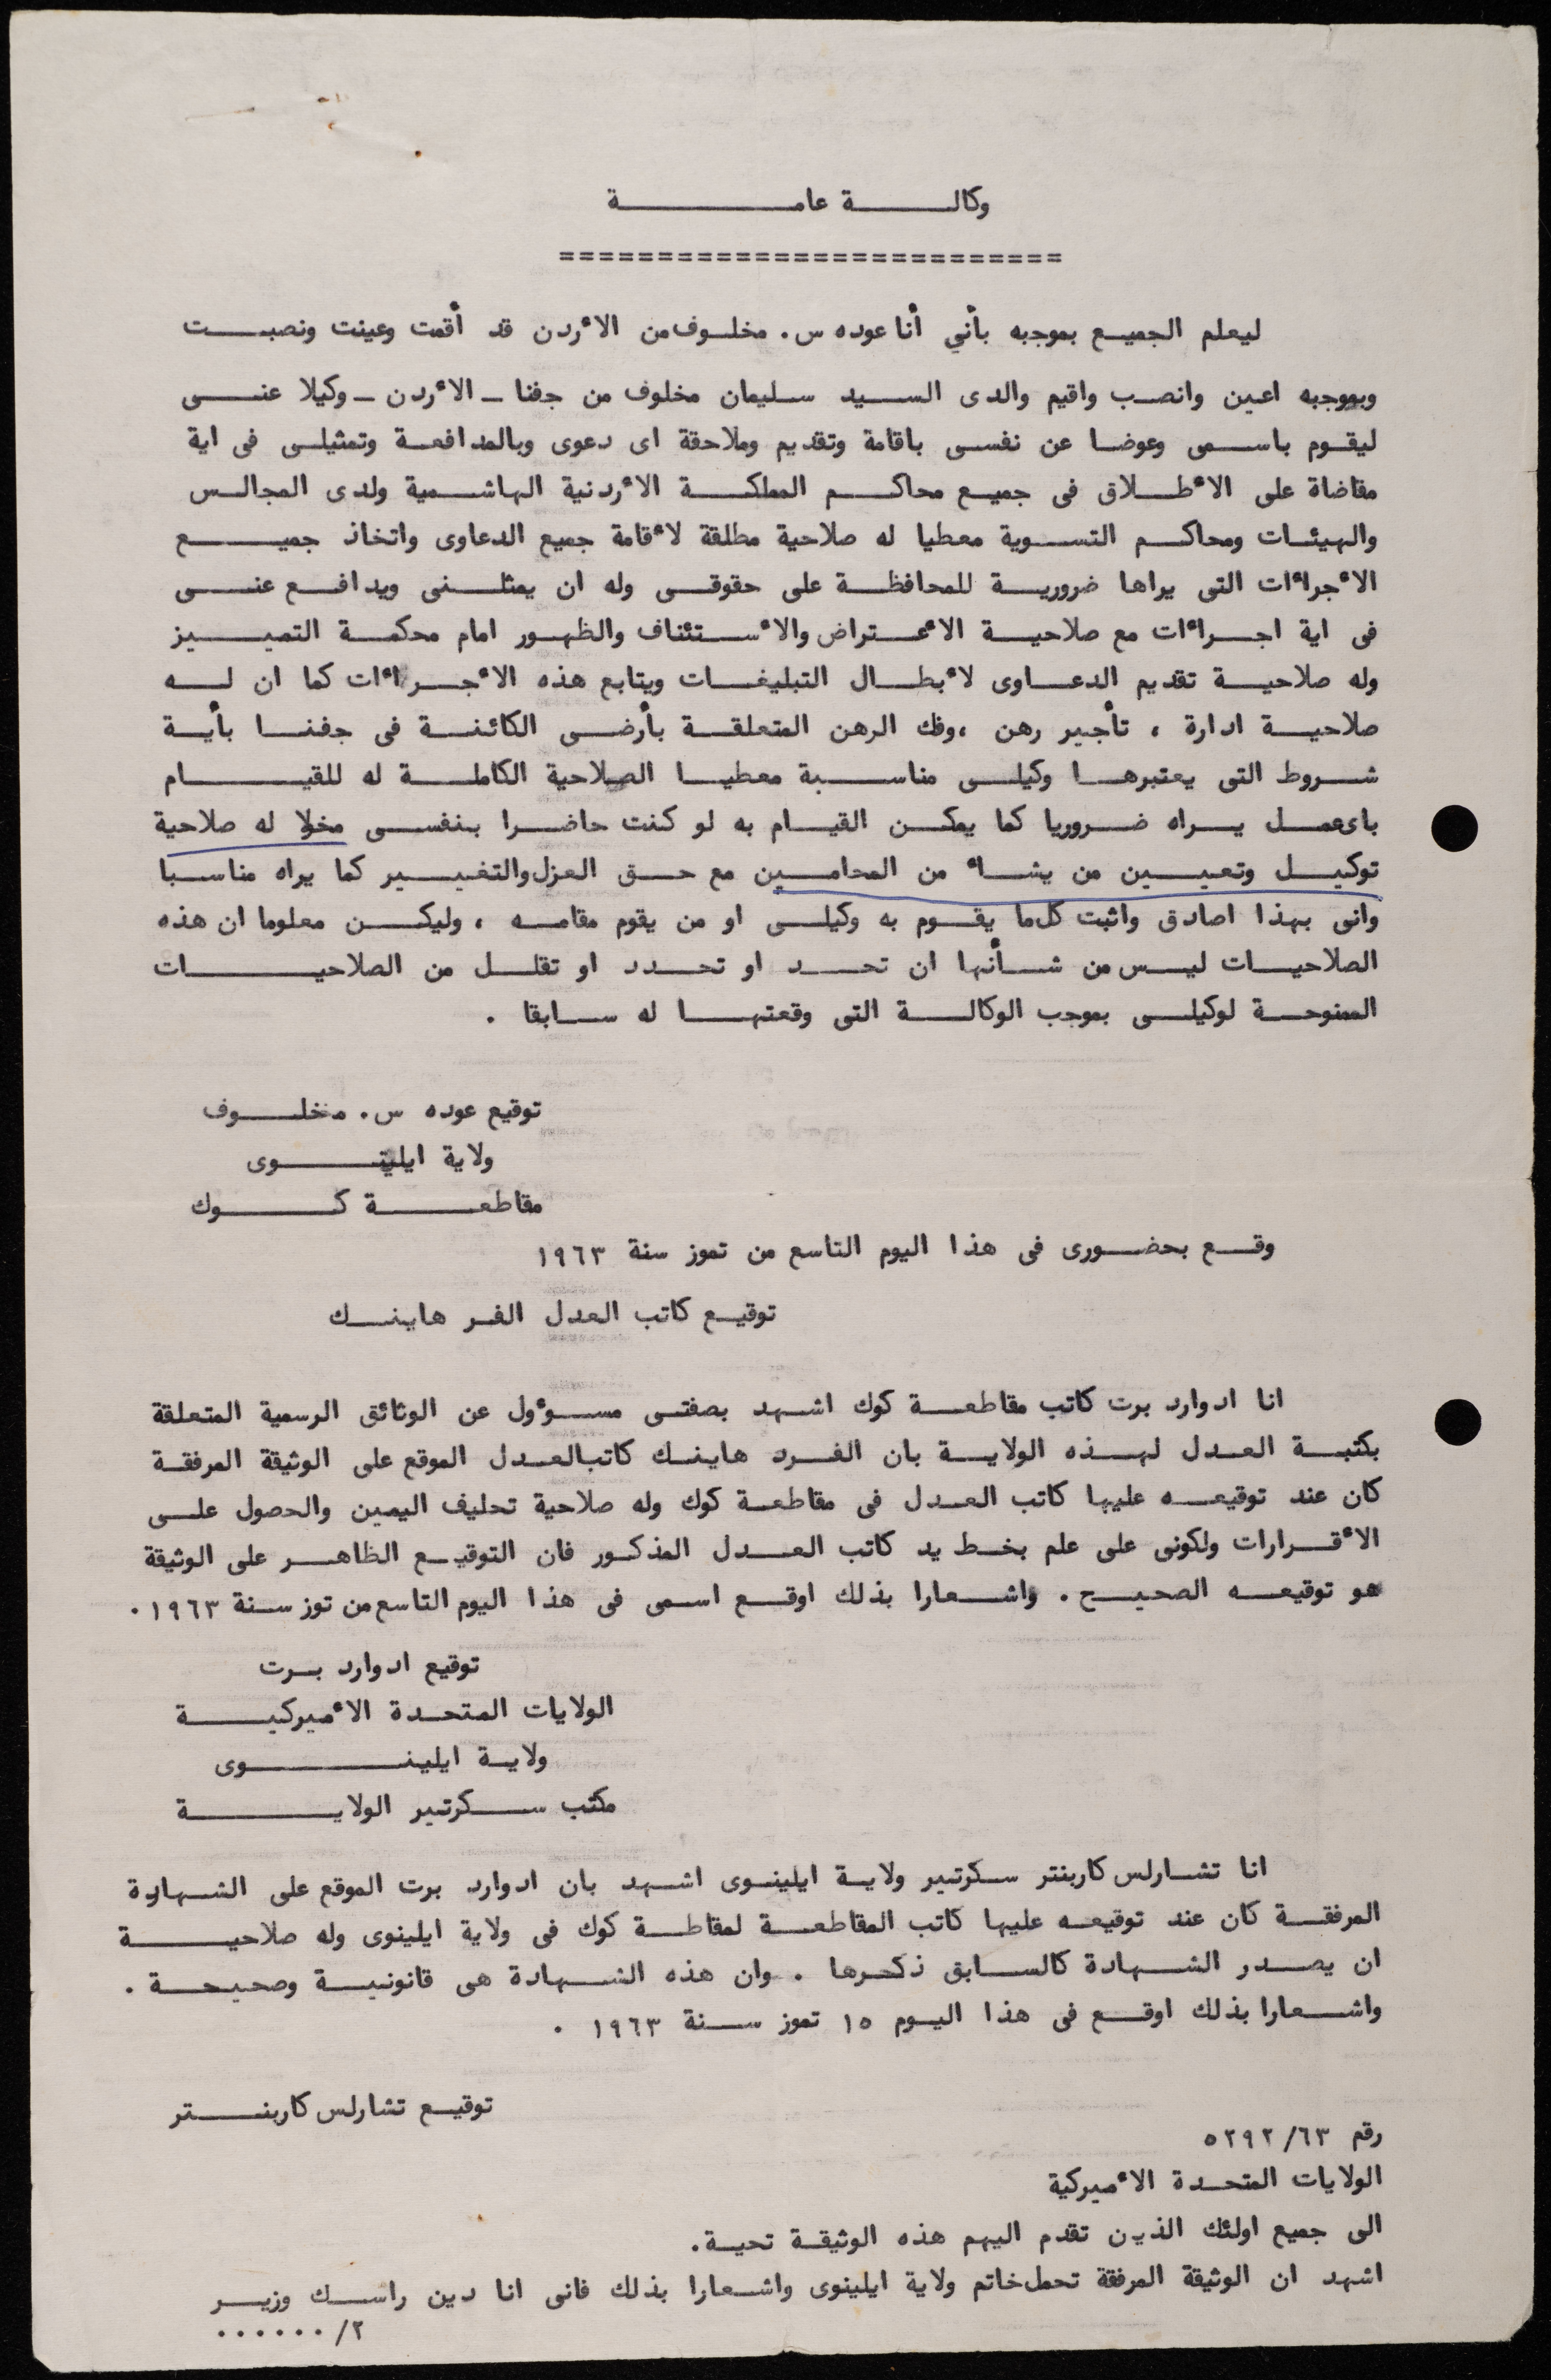 وكالة عامة
==========================
ليعلم الجميع بموجبه بأني أنا عوده س. مخلوف من الأردن قد أقمت وعينت ونصبت
وبموجبه اعين وانصب واقيم والدى السيد سليمان مخلوف من جفنا - الأردن - وكيلا عنى
ليقوم باسمى وعوضا عن نفسى باقامة وتقديم وملاحقة اى دعوى وبالمدافعة وتمثيلى فى اية
مقاضاة على الأطلاق فى جميع محاكم المملكة الأردنية الهاشمية ولدى المجالس
والهيئات ومحاكم التسوية معطيا له صلاحية مطلقة لأقامة جميع الدعاوى واتخاذ جميع
الأجراءات التى يراها ضرورية للمحافظة على حقوقى وله ان يمثلنى ويدافع عنى
فى اية اجراءات مع صلاحية الأعتراض والأستئناف والظهور امام محكمة التمييز
وله صلاحية تقديم الدعاوى لأبطال التبليغات ويتابع هذه الأجراءات كما ان له
صلاحية ادارة ، تأجير رهن ،وفك الرهن المتعلقة بأرضى الكائنة فى جفنا بأية
شروط التى يعتبرها وكيلى مناسبة معطيا الصلاحية الكاملة له للقيام
باىعمل يراه ضروريا كما يمكن القيام به لو كنت حاضرا بنفسى مخولا له صلاحية
توكيل وتعيين من يشاء من المحامين مع حق العزل والتغيير كما يراه مناسبا
وانى بهذا اصادق واثبت كل ما يقوم به وكيلى او من يقوم مقامه ، وليكن معلوما ان هذه
الصلاحيات ليس من شأنها ان تحد او تحدد او تقلل من الصلاحيات
الممنوحة لوكيلى بموجب الوكالة التى وقعتها له سابقا .
توقيع عوده س. مخلوف
ولاية ايلينوى
مقاطعة كوك
وقع بحضورى فى هذا اليوم التاسع من تموز سنة ١٩٦٣
توقيع كاتب العدل الفر هاينك
انا ادوارد برت كاتب مقاطعة كوك اشهد بصفتى مسوءول عن الوثائق الرسمية المتعلقة
بكتبة العدل لهذه الولاية بان الفرد هاينك كاتبالعدل الموقع على الوثيقة المرفقة
كان عند توقيعه عليها كاتب العدل فى مقاطعة كوك وله صلاحية تحليف اليمين والحصول على
الأقرارات ولكونى على علم بخط يد كاتب العدل المذكور فان التوقيع الظاهر على الوثيقة
هو توقيعه الصحيح . واشعارا بذلك اوقع اسمى فى هذا اليوم التاسع من توز سنة ١٩٦٣.
توقيع ادوارد برت
الولايات المتحدة الأميركية
ولاية ايلينوى
مكتب سكرتير الولاية
انا تشارلس كاربنتر سكرتير ولاية ايلينوى اشهد بان ادوارد برت الموقع على الشهادة
المرفقة كان عند توقيعه عليها كاتب المقاطعة لمقاطة كوك فى ولاية ايلينوى وله صلاحية
ان يصدر الشهادة كالسابق ذكرها . وان هذه الشهادة هى قانونية وصحيحة .
واشعارا بذلك اوقع فى هذا اليوم ١٥ تموز سنة ١٩٦٣ .
توقيع تشارلس كاربنتر
رقم ٥٢٩٢/٦٣
الولايات المتحدة الأميركية
الى جميع اولئك الذين تقدم اليهم هذه الوثيقة تحية.
اشهد ان الوثيقة المرفقة تحمل خاتم ولاية ايلينوى واشعارا بذلك فانى انا دين راسك وزير
٢/......